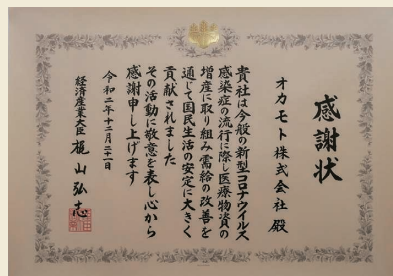 感謝状
オカモト株式会社 殿
貴社は今般の新型コロナウイルス
感染症の流行に際し医療物資の
増産に取り組み需給の改善を
通じて国民生活の安定に大きく
貢献されました
その活動に敬意を表し心から
感謝申し上げます
令和二年十二月二十一日
経済産業大臣 梶山弘志